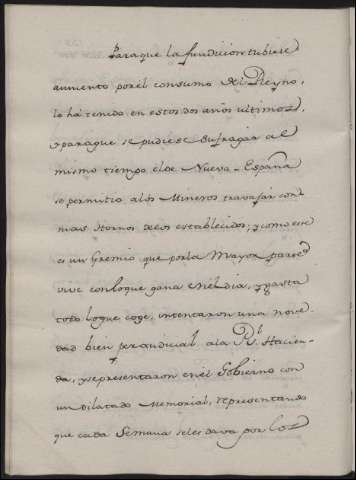 Para que la fundicion tubiese
aumento por él consumo del Reyno,
lo há tenido en estos dos años ultimos,
y para que se pudiese sufragar al
mismo tiempo él de Nueva-España
se permitio alós Mineros travajar con
mas Hornos delos establecidos; y como este
és un Gremio que porla Mayor parte
vive con loque gana enél dia, y gasta
todo loque coge, intentaron una nove-
dad bien perjudicial, ala Rl. Hacien-
da, y representaron en él Gobierno con
un dilatado Memorial, representando
que cada Semana seles dava por los